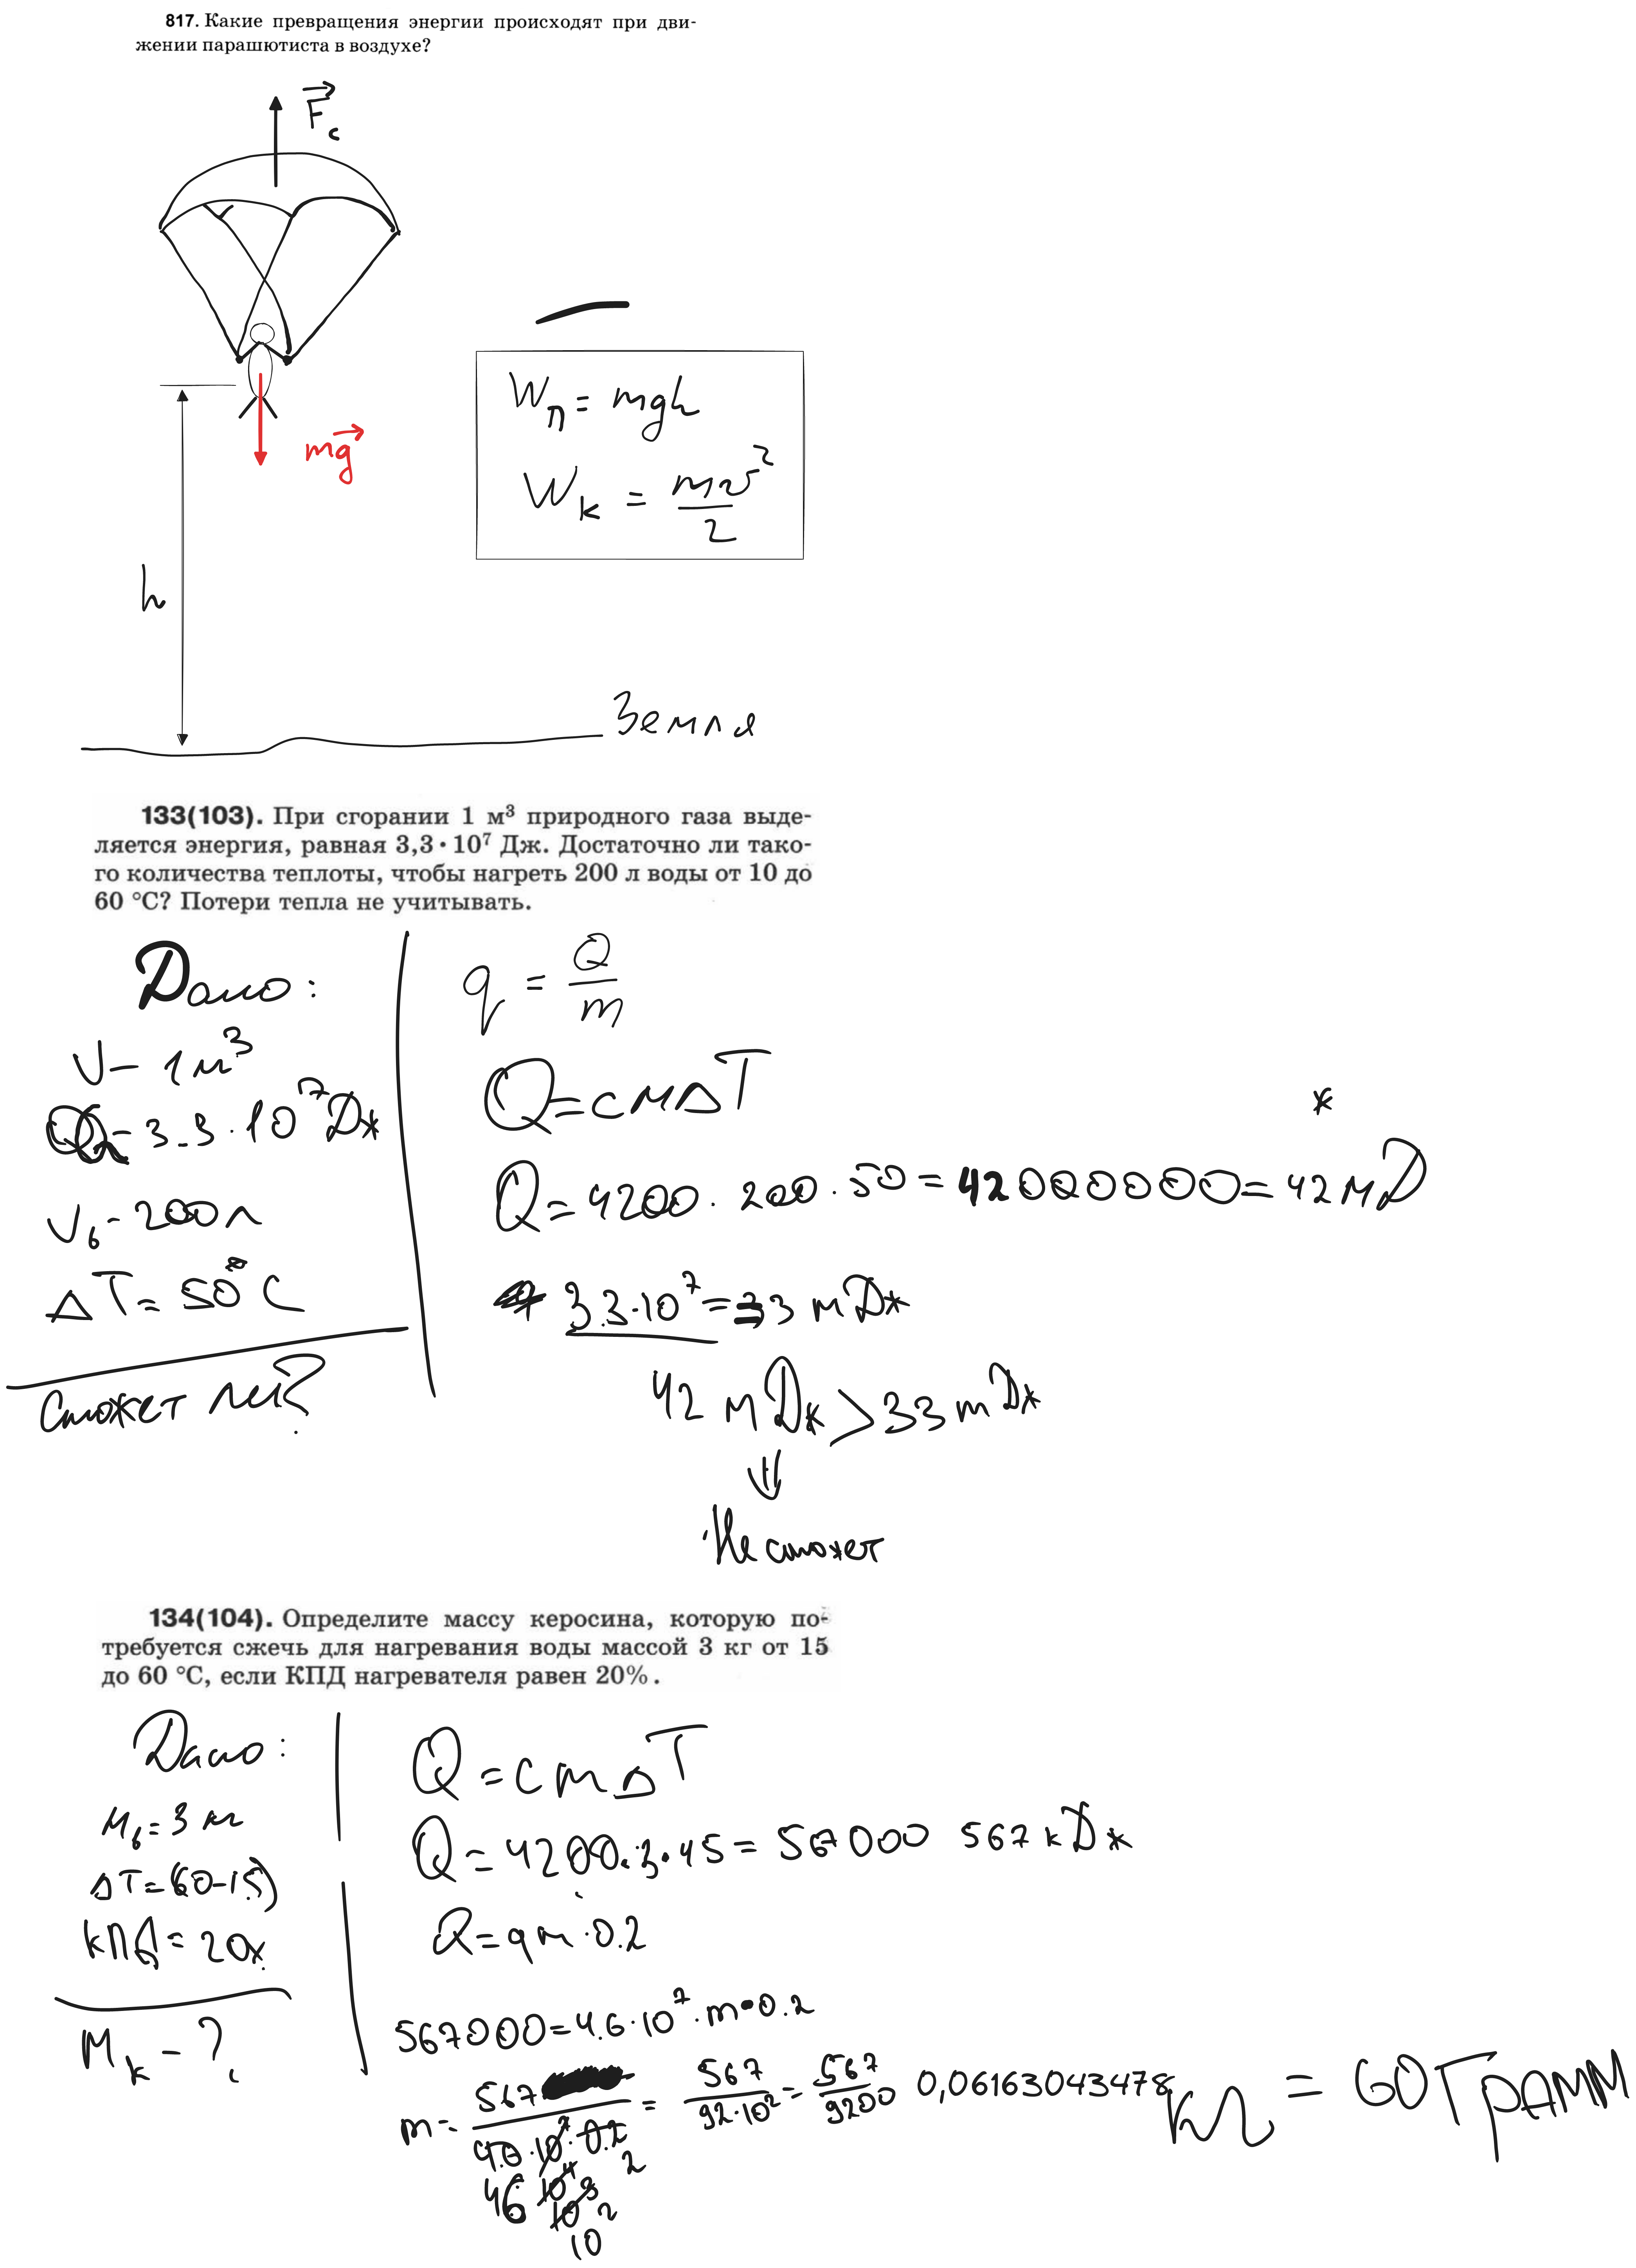 817. Какие превращения энергии происходят при дви-
жении парашютиста в воздухе?
F_c
mg
W_п = mgh
W_k = mv²/2
h
Земля
133(103). При сгорании 1 м³ природного газа выде-
ляется энергия, равная 3,3·10⁷ Дж. Достаточно ли тако-
го количества теплоты, чтобы нагреть 200 л воды от 10 до
60 °С? Потери тепла не учитывать.
Дано:
V – 1 м³
= 3.3·10⁷ Дж
V_в – 200 л
ΔT = 50°C
Сможет ли?
q = Q/m
Q = cmΔT
Q = 4200·200·50 = 42000000 = 42 мД
ж
3.3·10⁷ = 33 мДж
42 мДж > 33 мДж
⇓
Не сможет
134(104). Определите массу керосина, которую по-
требуется сжечь для нагревания воды массой 3 кг от 15
до 60 °С, если КПД нагревателя равен 20%.
Дано:
M_в = 3 кг
ΔT = (60-15)
КПД = 20%
M_k – ?
Q = cmΔT
Q = 4200·3·45 = 567000 567 кДж
Q = qm·0.2
567000 = 4.6·10⁷·m·0.2
m = 567/4.6·10⁷·0.2 = 567/92·10² = 567/9200 0,06163043478 кг = 60 грамм
2
46 10⁴ 3
10 2
10